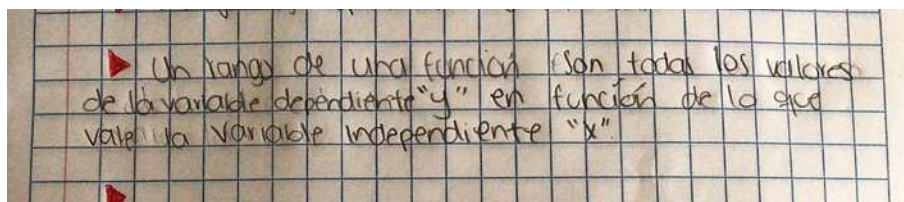 Un rango de una función son todas los valores
de la variable dependiente "y" en función de lo que
vale la variable independiente "x"